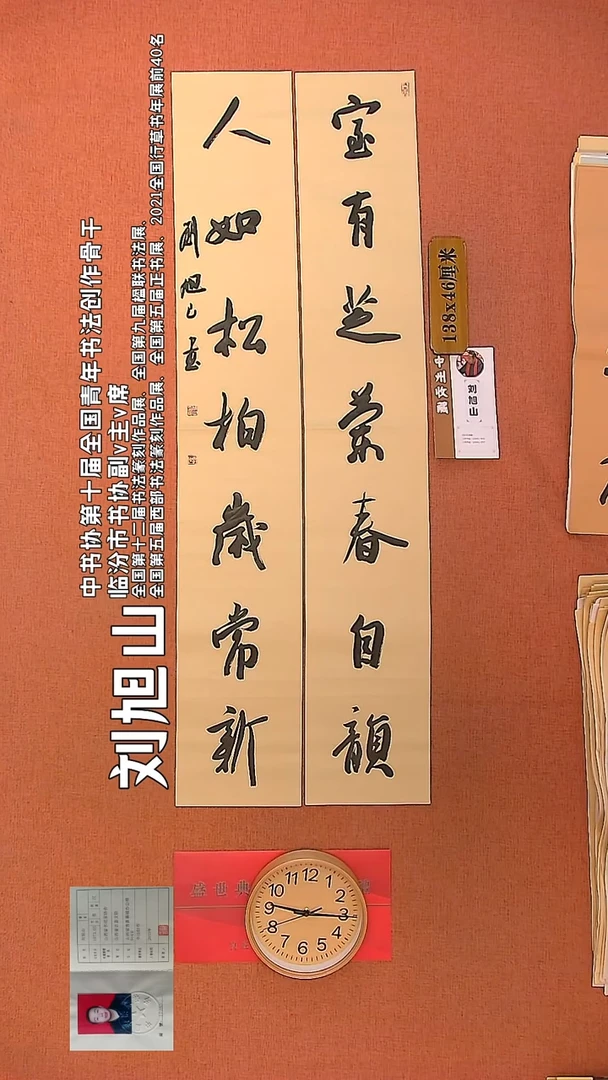 室有芝兰春自韻
人如松柏歲常新
刘旭山
中书协第十届全国青年书法创作骨干
临汾市书协副v主v席
全国第十二届书法篆刻作品展、全国第九届楹联书法展、
全国第五届西部书法篆刻作品展、全国第五届正书展、2021全国行草书年展前40名
138x46厘米
刘旭山
盛世典
12
1
2
3
4
5
6
7
8
9
10
11